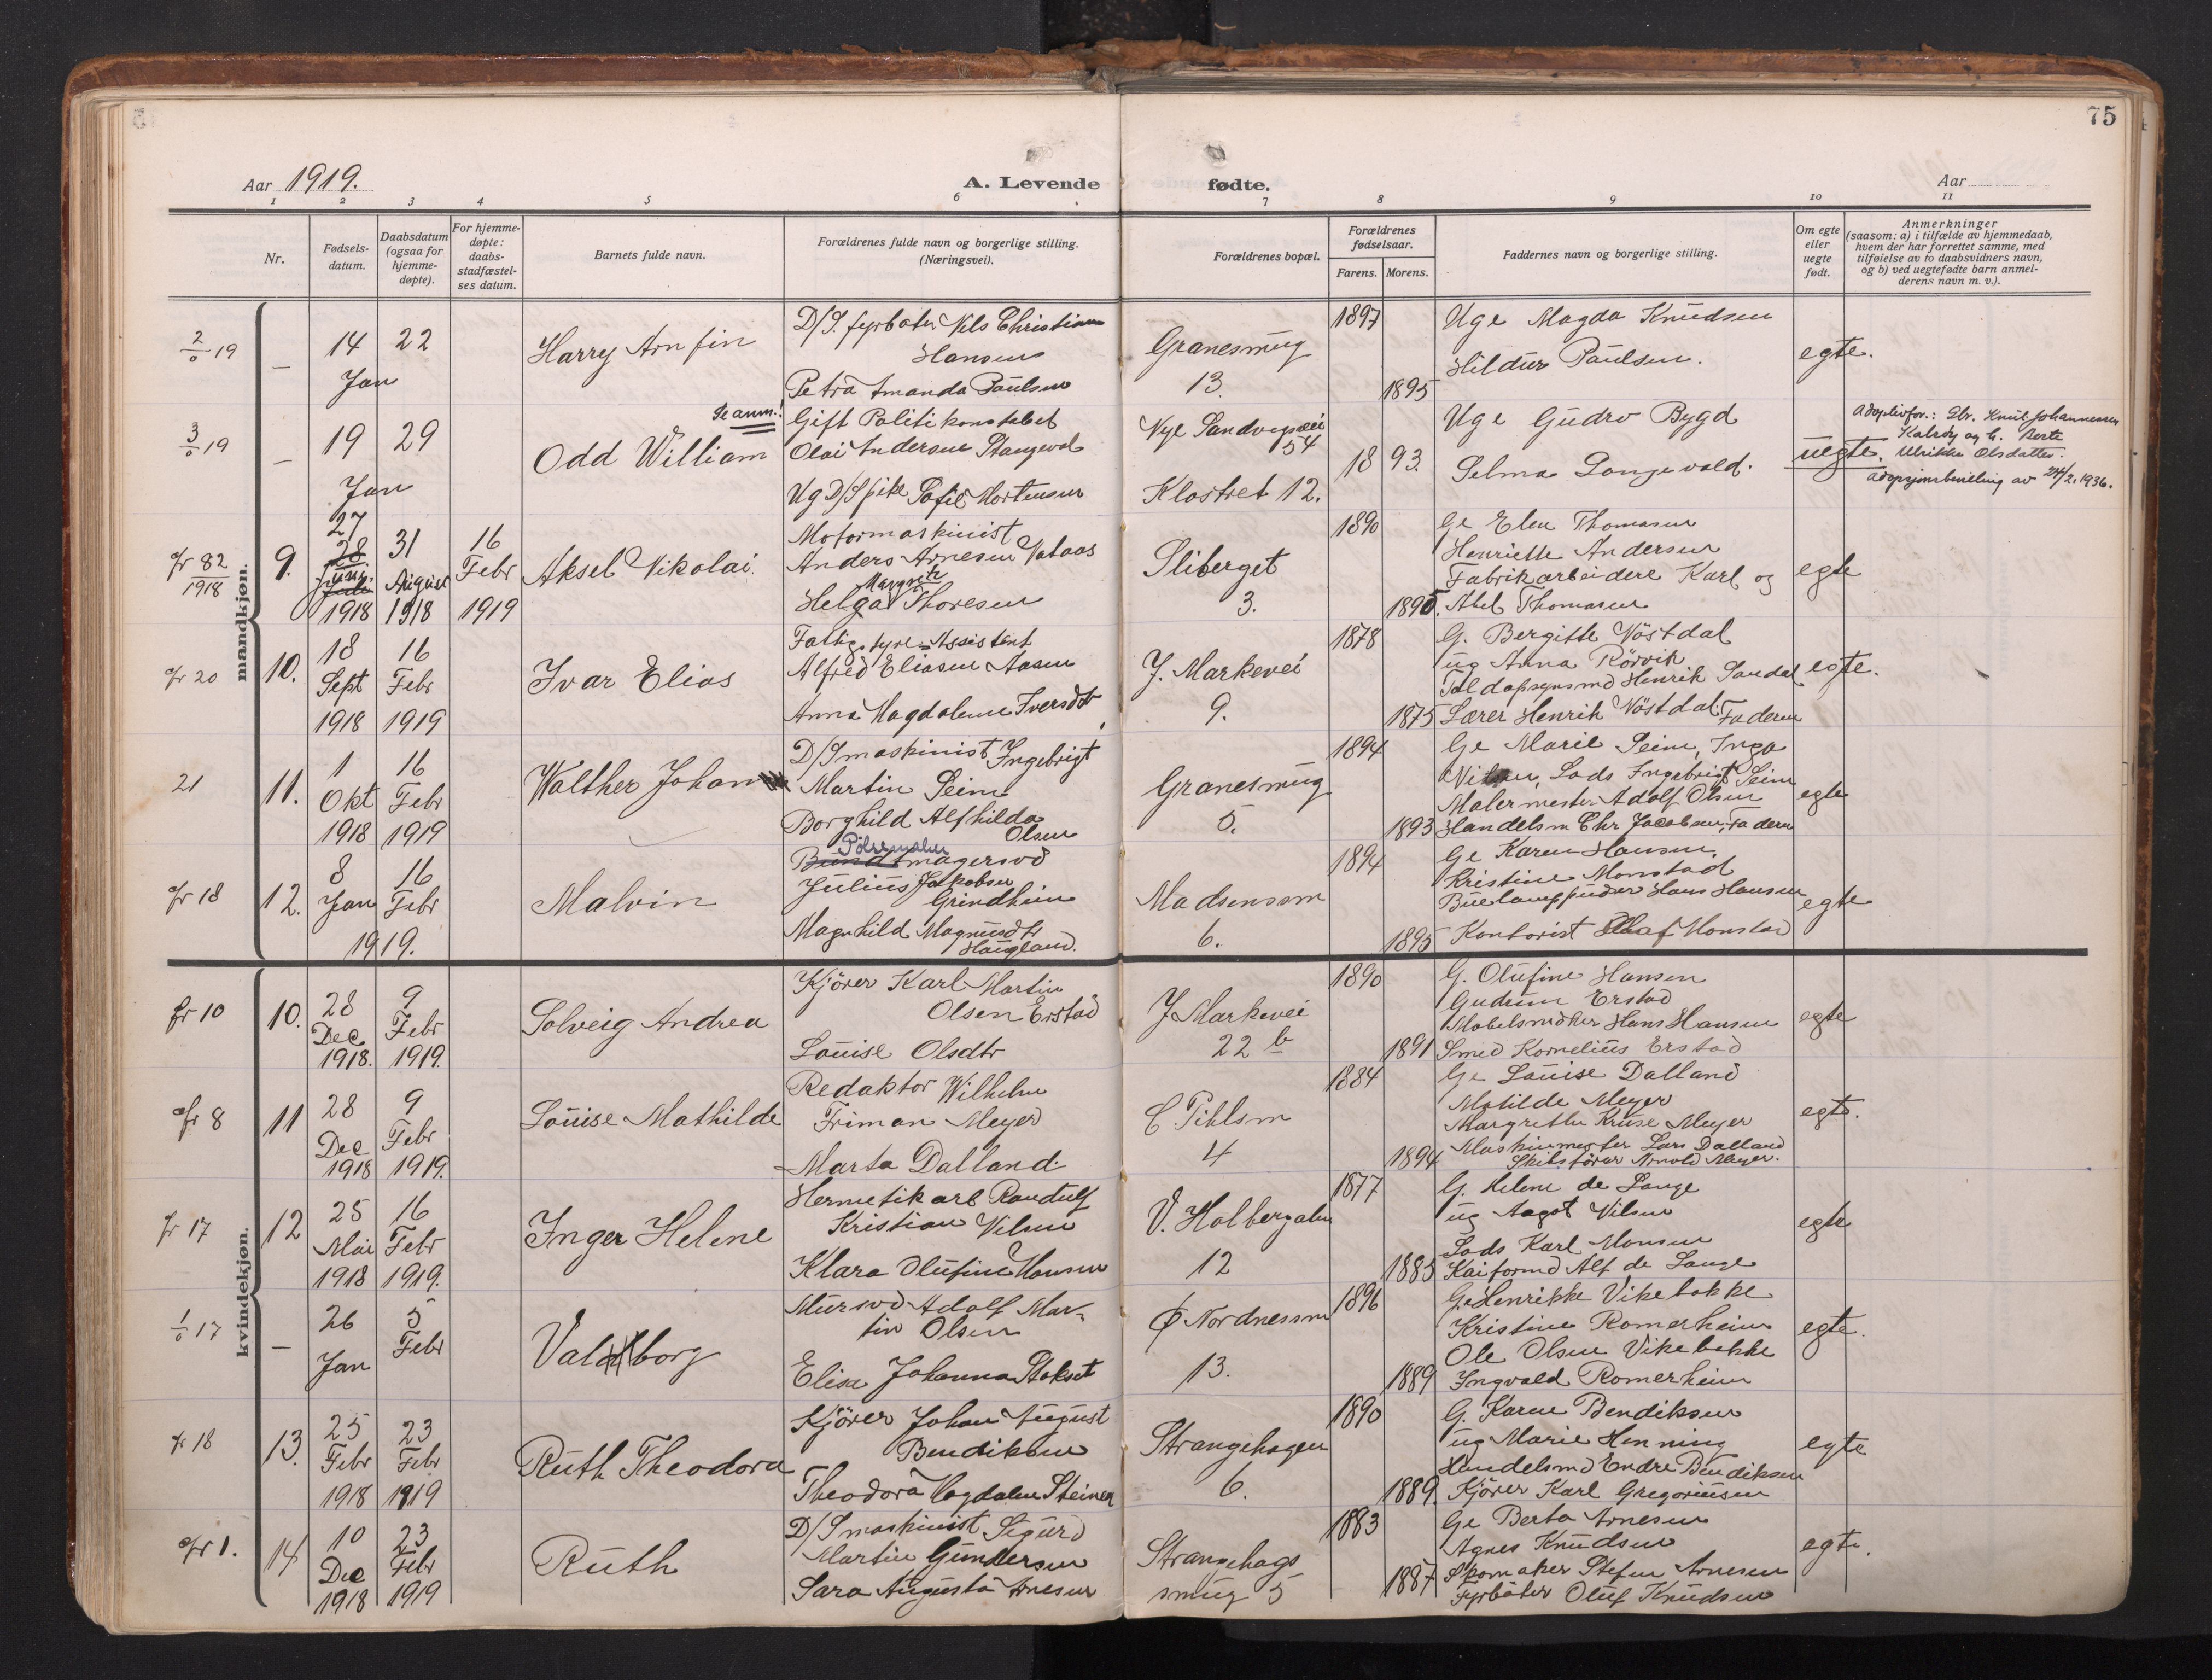 75
Aar 1919.
A. Levende
fødte.
Aar
1 2 3 4 5 6 7 8 9 10 11
Nr.
Fødsels-
datum.
Daabsdatum
(ogsaa for
hjemme-
døpte).
For hjemme-
døpte:
daabs-
stadfæstel-
ses datum.
Barnets fulde navn.
Forældrenes fulde navn og borgerlige stilling.
(Næringsvei).
Forældrenes bopæl.
Forældrenes
fødselsaar.
Farens. Morens.
Faddernes navn og borgerlige stilling.
Om egte
eller
uegte
født.
Anmerkninger
(saasom: a) i tilfælde av hjemmedaab,
hvem der har forrettet samme, med
tilføielse av to daabsvidners navn,
og b) ved uegtefødte barn anmel-
derens navn m. v.).
mandkjøn.
2/0 19
–
14
Jan
22
Harry Arnfin
D/S. fyrbøter Nils Christian
Hansen
Petra Amanda Paulsen
Granesmug
13.
1897
1895
Uge Magda Knudsen
Hildur Paulsen.
egte.
3/0 19
–
19
Jan
29
Se anm.!
Odd William
Gift Politikonstabel
Olai Andersen Stangevold
Ug D/S pike Sofie Mortensen
Nye Sandvigsvei
54
Klostret 12.
1893.
Uge Gudro Bygd
Selma Langevold.
uegte.
Adoptivfor.: Gbr. Knut Johannessen
Kalsöy og h. Berte
Ulrikke Olsdatter.
Adopsjonsbevilling av 24/2. 1936.
fr 82
1918
9.
27
28
Juni.
Juli
1918
31
August
1918
16
Febr
1919
Aksel Nikolai.
Motormaskinist
Anders Arnesen Vataas
Margrete
Helga Thoresen
Sliberget
3.
1890
1890.
Ge Elen Thomasen
Henriette Andersen
Fabrikarbeidere Karl og
Abel Thomasen
egte
fr 20
10.
18
Sept
1918
16
Febr
1919
Ivar Elias
Fattigstyre=Assistent
Alfred Eliasen Aasen
Anna Magdalene Iversdtr
J. Markevei
9.
1878
1875
G. Bergitte Nöstdal
ug Anna Rörvik
Toldopsynsmd Henrik Sandal
Lærer Henrik Nöstdal. Faderen
egte.
21
11.
1
Okt
1918
16
Febr
1919
Walther Johan
D/S maskinist Ingebrigt
Martin Seim
Borghild Alfhilda
Olsen
Granesmug
5.
1894
1893
Ge Marie Seim, Inga
Nilsen, Lods Ingebrigt Seim
Malermester Adolf Olsen
Handelsm Chr Jacobsen, Faderen
egte
fr 18
12.
8
Jan
16
Febr
1919.
Malvin
Pölsemaker
Bundtmagersvd
Julius Jakobsen
Grindheim
Magnhild Magnusdtr
Haugland.
Madsensm
6.
1894
1895
Ge Karen Hansen,
Kristine Monstad
Buelampudser Hans Hansen
Kontorist Olaf Monstad
egte
kvindekjøn.
fr 10
10.
28
Dec
1918.
9
Febr
1919.
Solveig Andrea
Kjörer Karl Martin
Olsen Erstad
Louise Olsdtr
J Markevei
22 b
1890
1891
G. Olufine Hansen
Gudrun Erstad
Møbelsnedker Hans Hansen
Smed Kornelius Erstad
egte
fr 8
11
28
Dec
1918
9
Febr
1919.
Louise Mathilde
Redaktør Wilhelm
Friman Meyer
Marta Dalland.
C Pihlsm
4
1884
1894
Ge Louise Dalland
Matilde Meyer
Margrethe Kruse Meyer
Maskinmester Lars Dalland
Skibsförer Arnold Meyer.
egte.
fr 17
12
25
Mai
1918
16
Febr
1919.
Inger Helene
Hermetikarb Randulf
Kristian Nilsen
Klara Olufine Monsen
V. Holbergalm
12
1877
1885
G. Helene de Lange
ug Aagot Nilsen
Lods Karl Monsen
Kaiformd Alf de Lange
egte
1/0 17
–
26
Jan
5
Febr
Valborg
Mursvd Adolf Mar-
tin Olsen
Elisa Johanna Stokset
Ø Nordnessm
13.
1896
1889
Ge Henrikke Vikebakke
Kristine Romerheim
Ole Olsen Vikebakke
Ingvald Romerheim
egte.
fr 18
13.
25
Febr
1918
23
Febr
1919
Ruth Theodora
Kjörer Johan August
Bendiksen
Theodora Magdalen Steinen
Strangehagen
6.
1890
1889.
G. Karen Bendiksen
ug Marie Henning
Handelsmd Endre Bendiksen
Kjörer Karl Gregoriussen
egte
fr 1.
14
10
Dec
1918
23
Febr
1919
Ruth
D/S maskinist Sigurd
Martin Gundersen
Sara Augusta Arnesen
Strangehags
smug 5
1883
1887
Ge Berta Arnesen
Agnes Knudsen
Skomaker Stefen Arnesen
Fyrbøter Oluf Knudsen
egte.